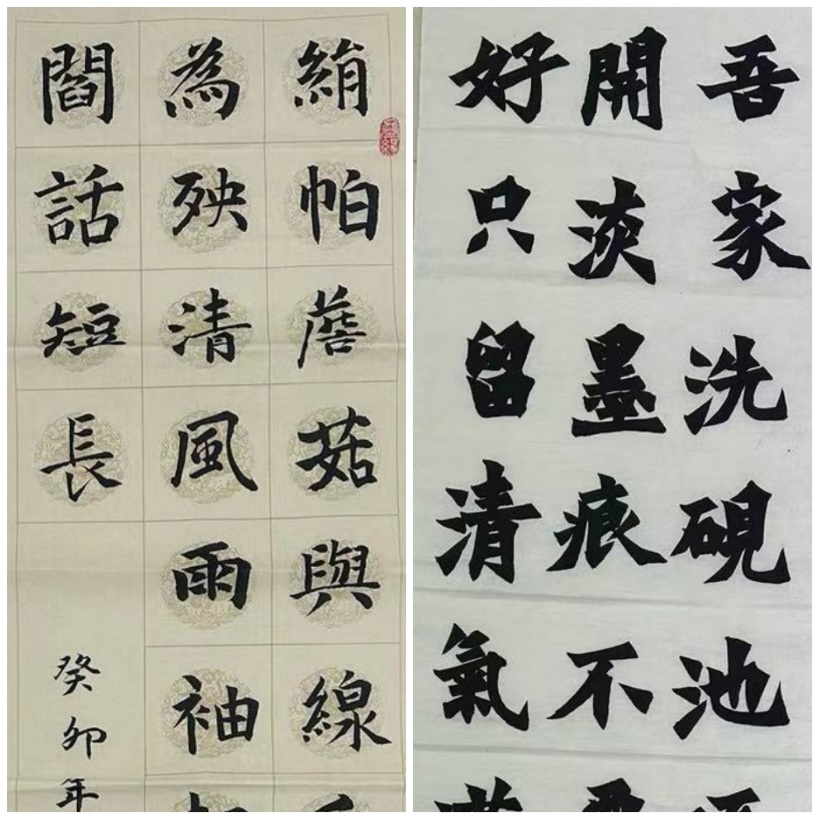 絹帕蘑菇與線
為殃清風雨袖
閻話短長
癸卯年
吾家洗硯池
開淡墨痕不
好只留清氣